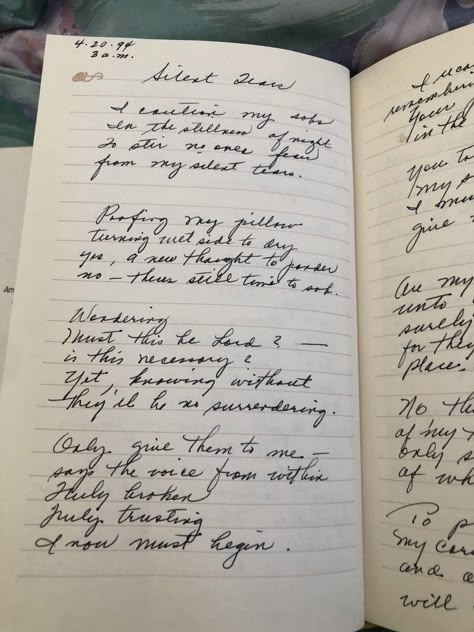 4.20.94
3 a.m.
Silent Tears
I caution my sobs
In the stillness of night
To stir no ones fears
from my silent tears.
Poofing my pillow
turning wet side to dry
yes, a new thought to ponder
no – theres still time to sob.
Wondering
Must this be Lord? —
is this necessary?
Yet, knowing without
they'll be no surrendering.
Only give them to me –
says the voice from within
Truly broken
Truly trusting
I now must begin.
Am
remembering
your
in the
You
my
I
give
Are my
unto
surely
for they
place.
No
of my
only
of
To
my
and
will